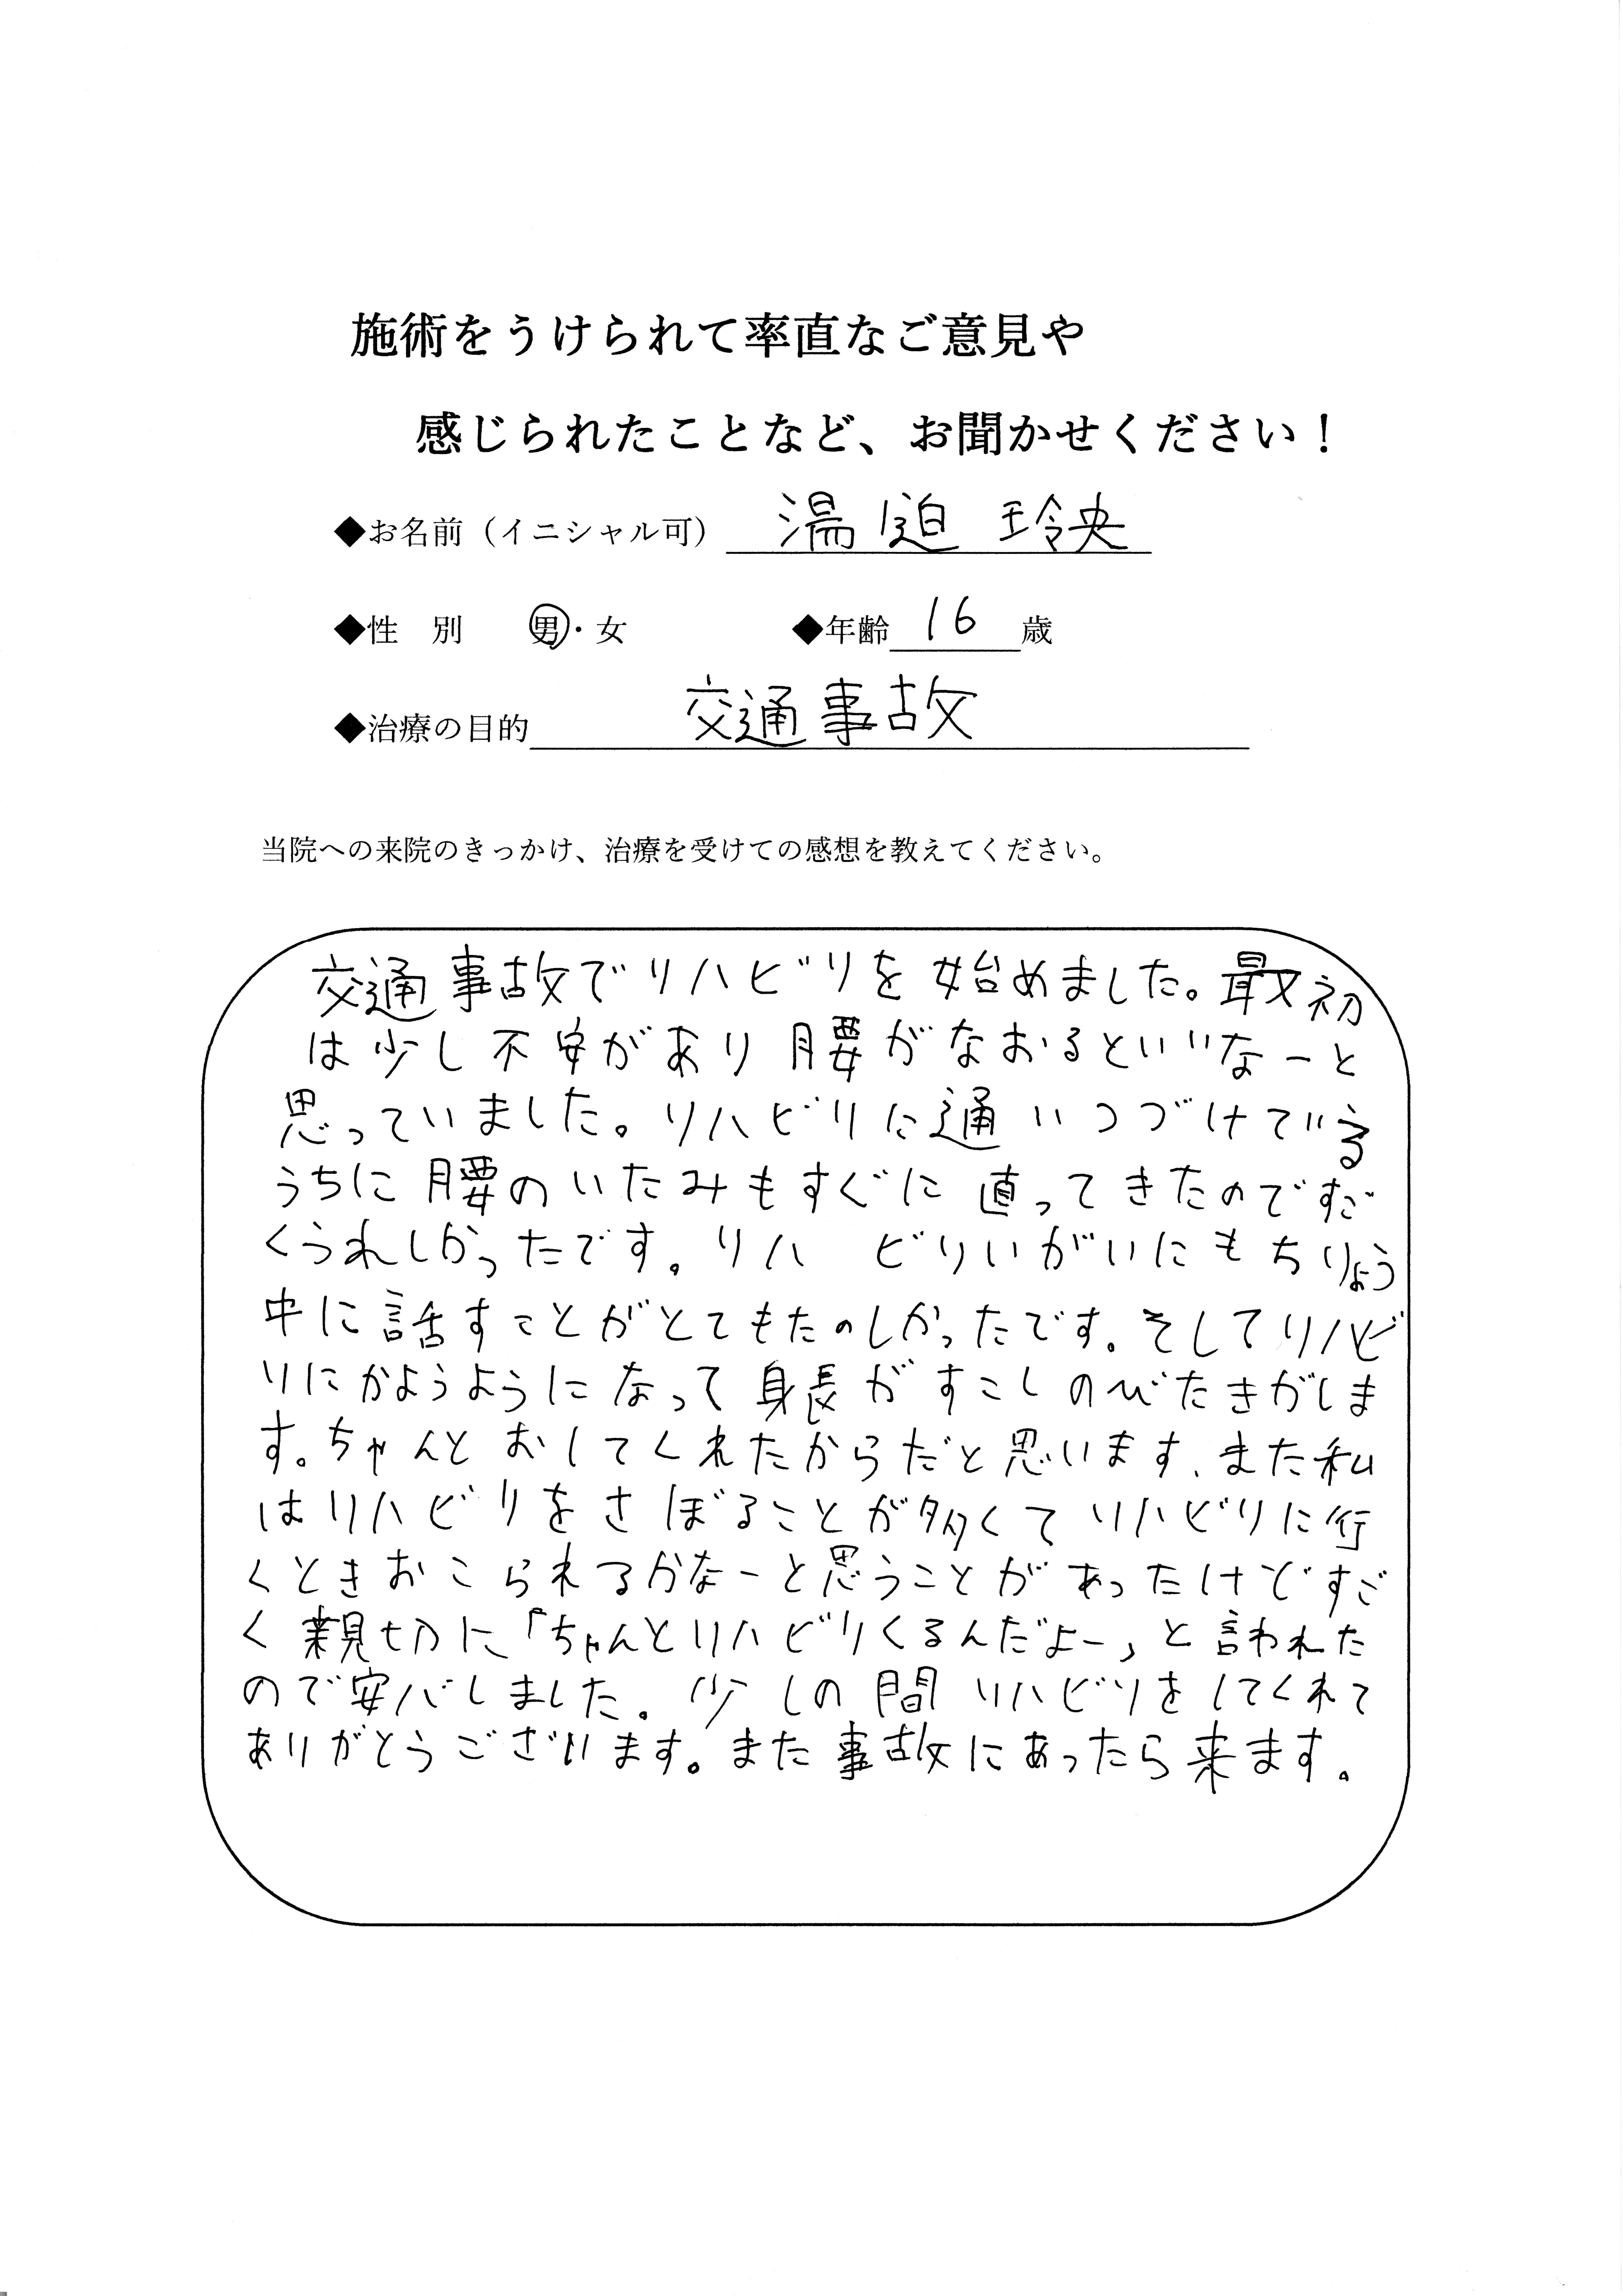 施術をうけられて率直なご意見や
感じられたことなど、お聞かせください！
◆お名前（イニシャル可） 湯迫 玲央
◆性 別 男・女 ◆年齢 16 歳
◆治療の目的 交通事故
当院への来院のきっかけ、治療を受けての感想を教えてください。
交通事故でリハビリを始めました。最初
は少し不安があり腰がなおるといいなーと
思っていました。リハビリに通いつづけている
うちに腰のいたみもすぐに直ってきたのですご
くうれしかったです。リハビリいがいにもちりょう
中に話すことがとてもたのしかったです。そしてリハビ
リにかようようになって身長がすこしのびたきがしま
す。ちゃんとおしてくれたからだと思います、また私
はリハビリをさぼることが多くてリハビリに行
くときおこられるかなーと思うことがあったけどすご
く親切に「ちゃんとリハビリくるんだよー」と言われた
ので安バしました。少しの間リハビリをしてくれて
ありがとうございます。また事故にあったら来ます。